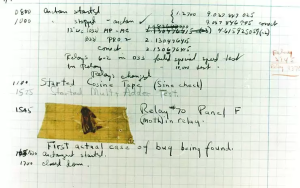 0800 antan started
1000 " stopped - antan ✓
13"uc (032) MP-MC
033 PRO 2 2.130476415
correct 2.130676415
Relays 6-2 in 033 failed special speed test
in relay
Relays changed
1100 Started Cosine Tape (Sine check)
1525 Started Multi Adder Test.
1545 Relay #70 Panel F
(moth) in relay.
First actual case of bug being found.
antangent started.
1700 closed down.